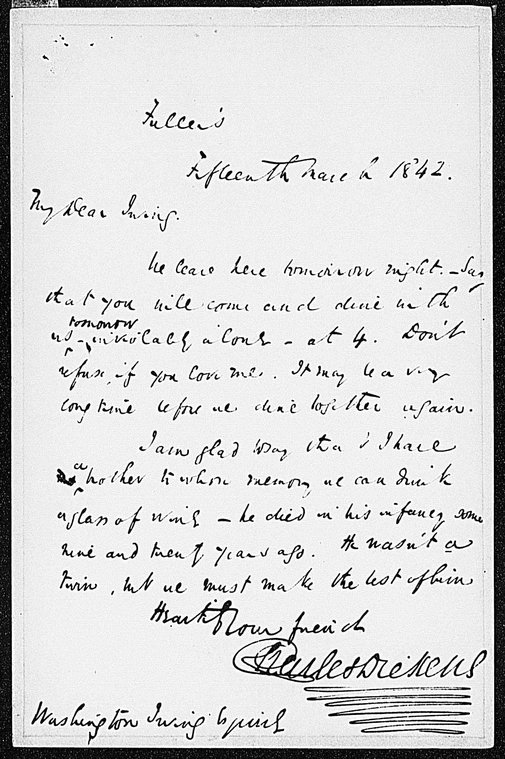 Fuller's
Fifteenth March 1842.
My Dear Irving.
We leave here tomorrow night. – Say
that you will come and dine with
tomorrow
us – inviolably alone – at 4. Don't
refuse, if you love me. It may be a very
long time before we dine together again.
I am glad to say that I have
a
brother to whose memory we can drink
a glass of wine – he died in his infancy some
nine and twenty years ago. He wasn't a
twin, but we must make the best of him
Heartily Your friend
Charles Dickens
Washington Irving Esquire